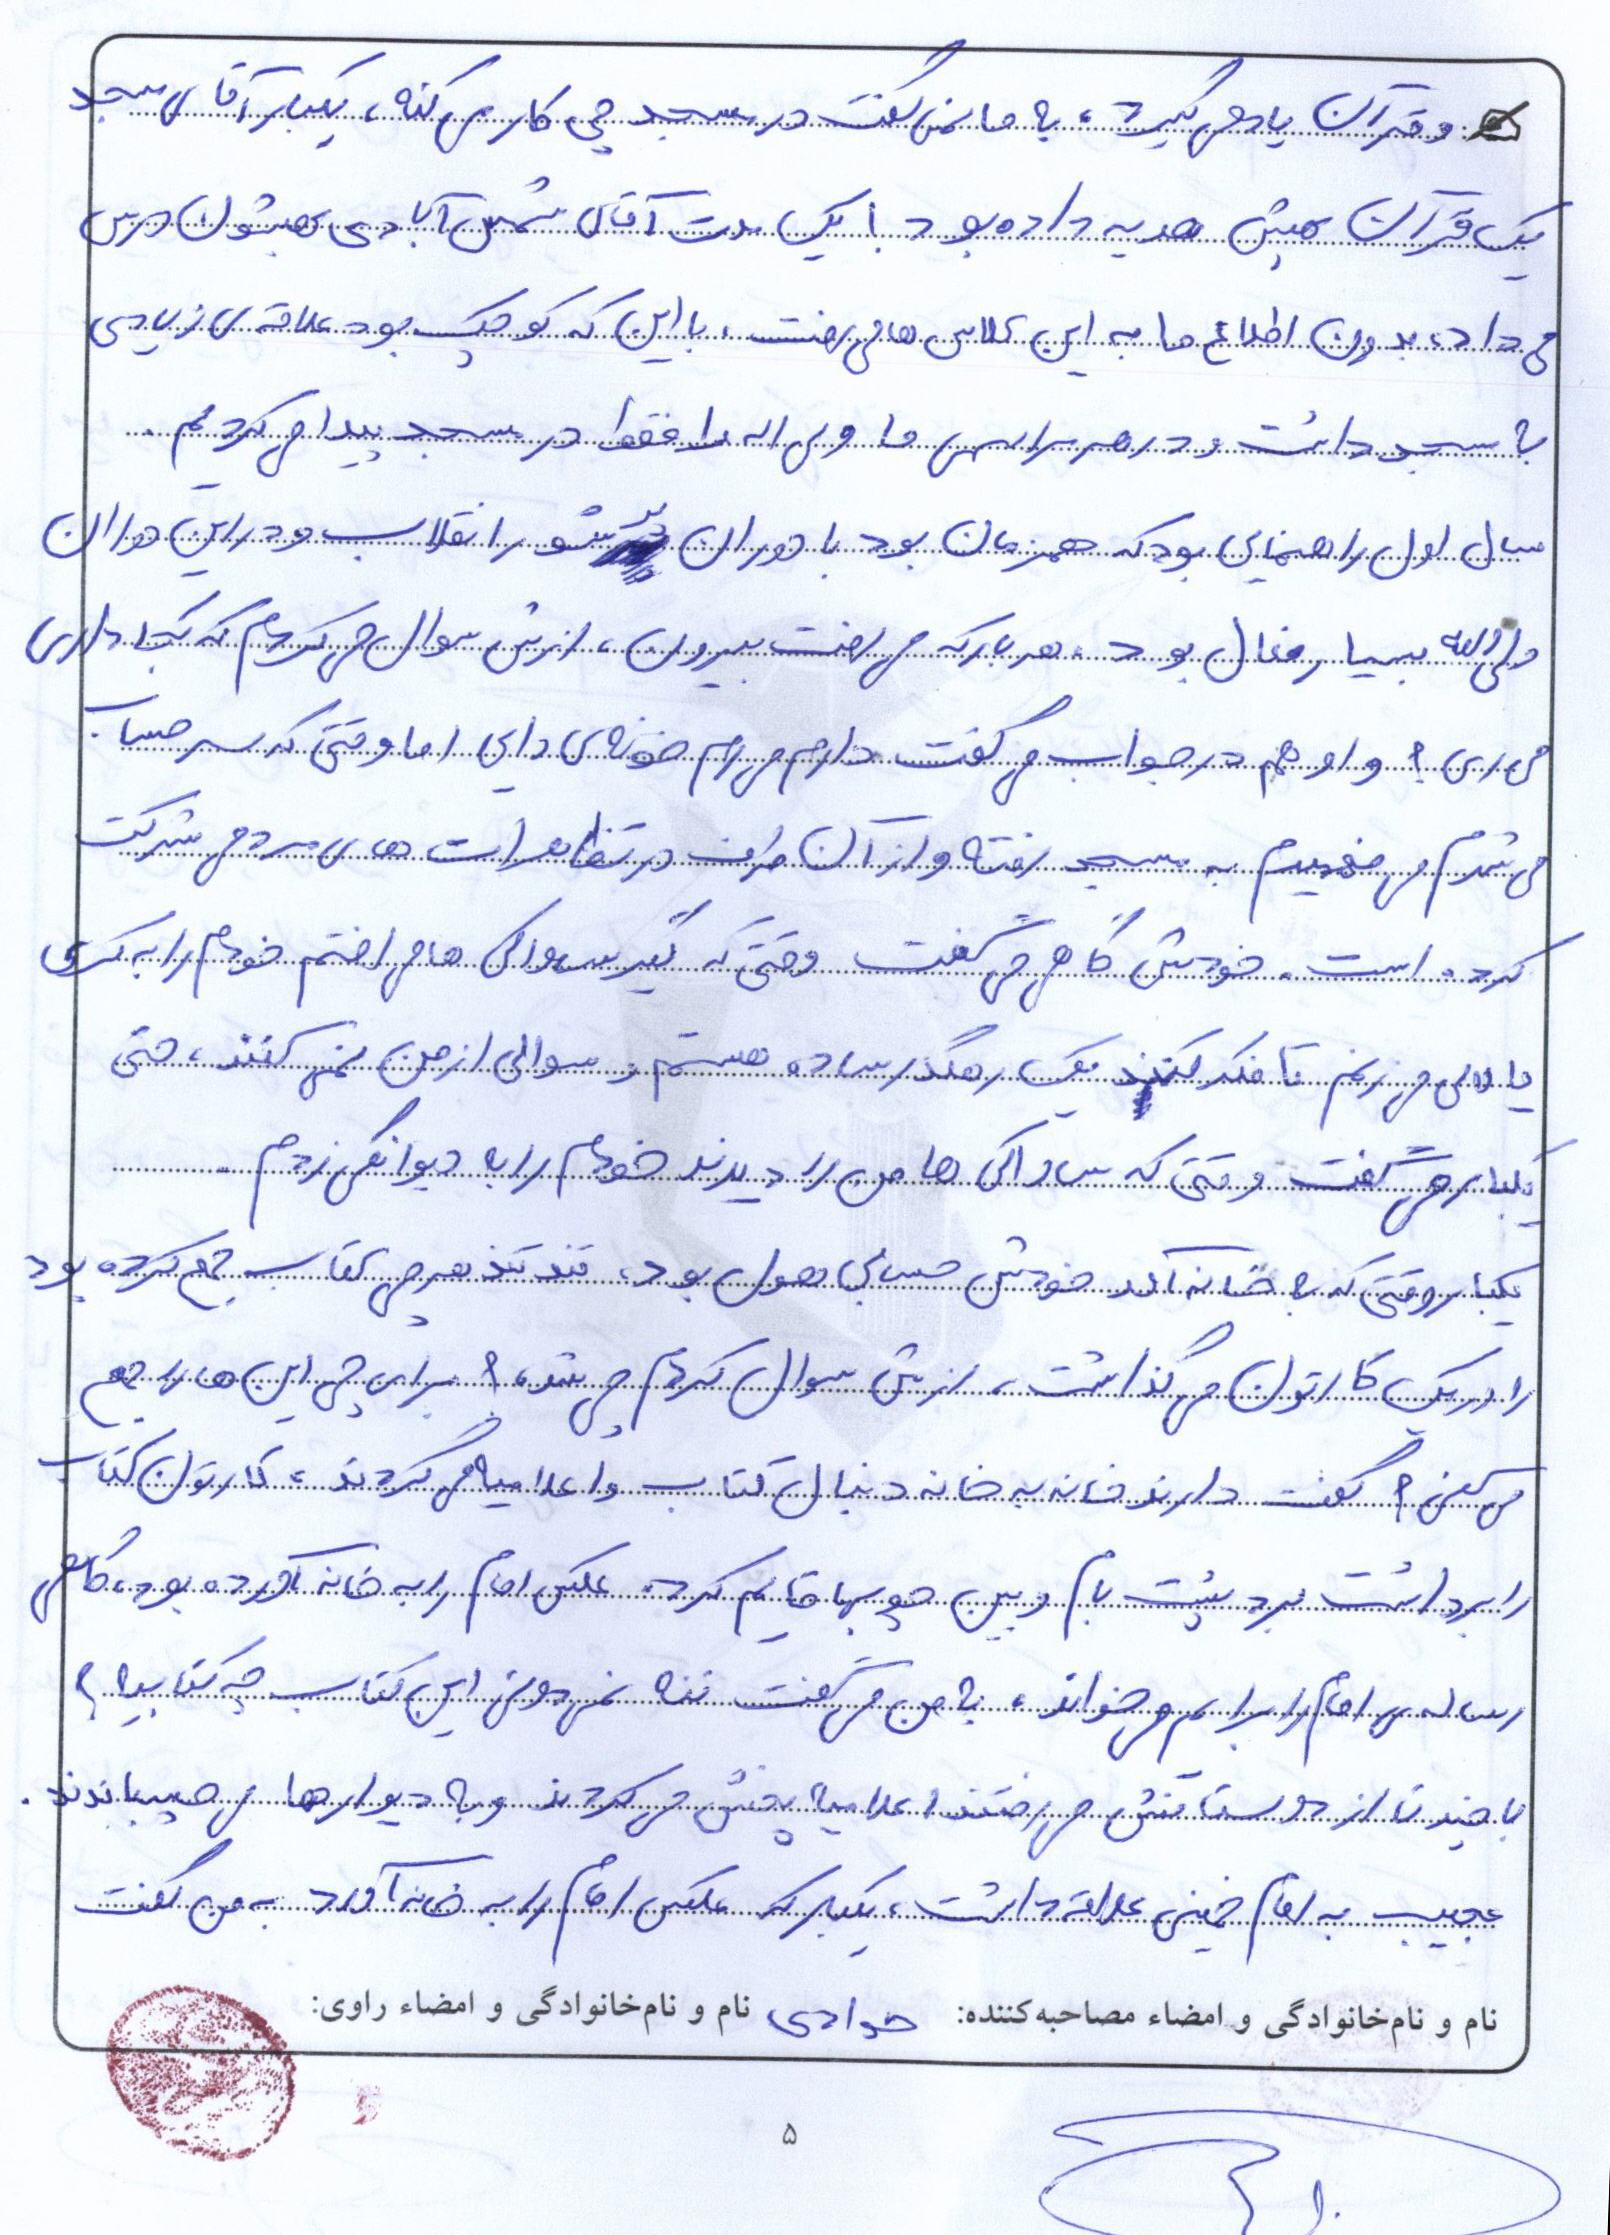 و قرآن یاد می گیرد، به ما نمی گفت در مسجد چی کار می کنه، یکبار آقای مسجد
یک قرآن بهش هدیه داده بود. یک مدت آقای شمس آبادی بهشون درس
می داد، بدون اطلاع ما به این کلاس ها می رفت، با این که کوچک بود علاقه ی زیادی
به مسجد داشت و در هر مراسمی ما ولی اله را فقط در مسجد پیدا می کردیم.
سال اول راهنمایی بود که همزمان بود با دوران پرشور انقلاب و در این دوران
ولی الله بسیار فعال بود، هر بار که می رفت بیرون، ازش سوال می کردم که کجا داری
می ری؟ و او هم در جواب می گفت دارم می رم خونه ی دایی اما وقتی که سر حساب
می شدم می فهمیدم به مسجد رفته و از آن طرف در تظاهرات های مردمی شرکت
کرده است. خودش گاهی می گفت وقتی که گیر ساواکی ها می افتم خودم را به کری
یا لالی می زنم تا فکر کنند یک رهگذر ساده هستم و سوالی از من نمی کنند، حتی
یکبار می گفت وقتی که ساواکی ها من را دیدند خودم را به دیوانگی زدم.
یکبار وقتی که به خانه آمد خودش حسابی هول بود، تند تند هر چی کتاب جمع کرده بود
را در یک کارتون می گذاشت، ازش سوال کردم چی شده؟ برای چی این ها را جمع
می کنی؟ گفت دارند خانه به خانه دنبال کتاب و اعلامیه می گردند، کارتون کتاب
را برداشت برد پشت بام و بین چوبها قایم کرد. عکس امام را به خانه آورده بود، گاهی
رساله ی امام را برایم می خواند، به من می گفت ننه نمی دونی این کتاب چه کتابیه؟
با چند تا از دوستانش می رفتند اعلامیه پخش می کردند و به دیوارها می چسباندند.
عجیب به امام خمینی علاقه داشت، یکبار که عکس امام را به خانه آورد به من گفت
نام و نام‌خانوادگی و امضاء مصاحبه‌کننده: جوادی نام و نام‌خانوادگی و امضاء راوی:
۵